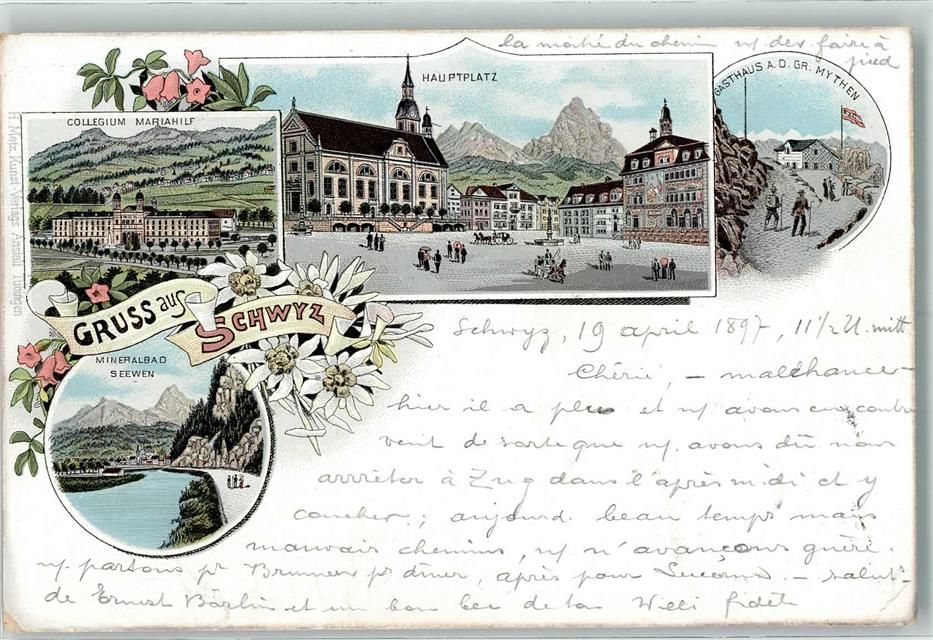 la moitié du chemin ns. des. faire à
pied
HAUPTPLATZ
GASTHAUS A.D. GR. MYTHEN
COLLEGIUM MARIAHILF
H. Metz, Kunst-Verlags-Anstalt, Tübingen
GRUSS aus SCHWYZ
MINERALBAD
SEEWEN
Schwyz, 19 april 1897, 11½ U. mitt
Chérie, – malchance –
hier il a plu et ns. avons eu contre
vent de sorte que ns. avons dû nous
arrêter à Zug dans l'après midi et y
coucher; aujourd. beau temps mais
mauvais chemins, ns. n'avançons guère.
ns. partons pr. Brunnen pr. dîner, après pour Lucerne – salut
de Ernest Bärlin et un bon bec de ton Willi fidèle